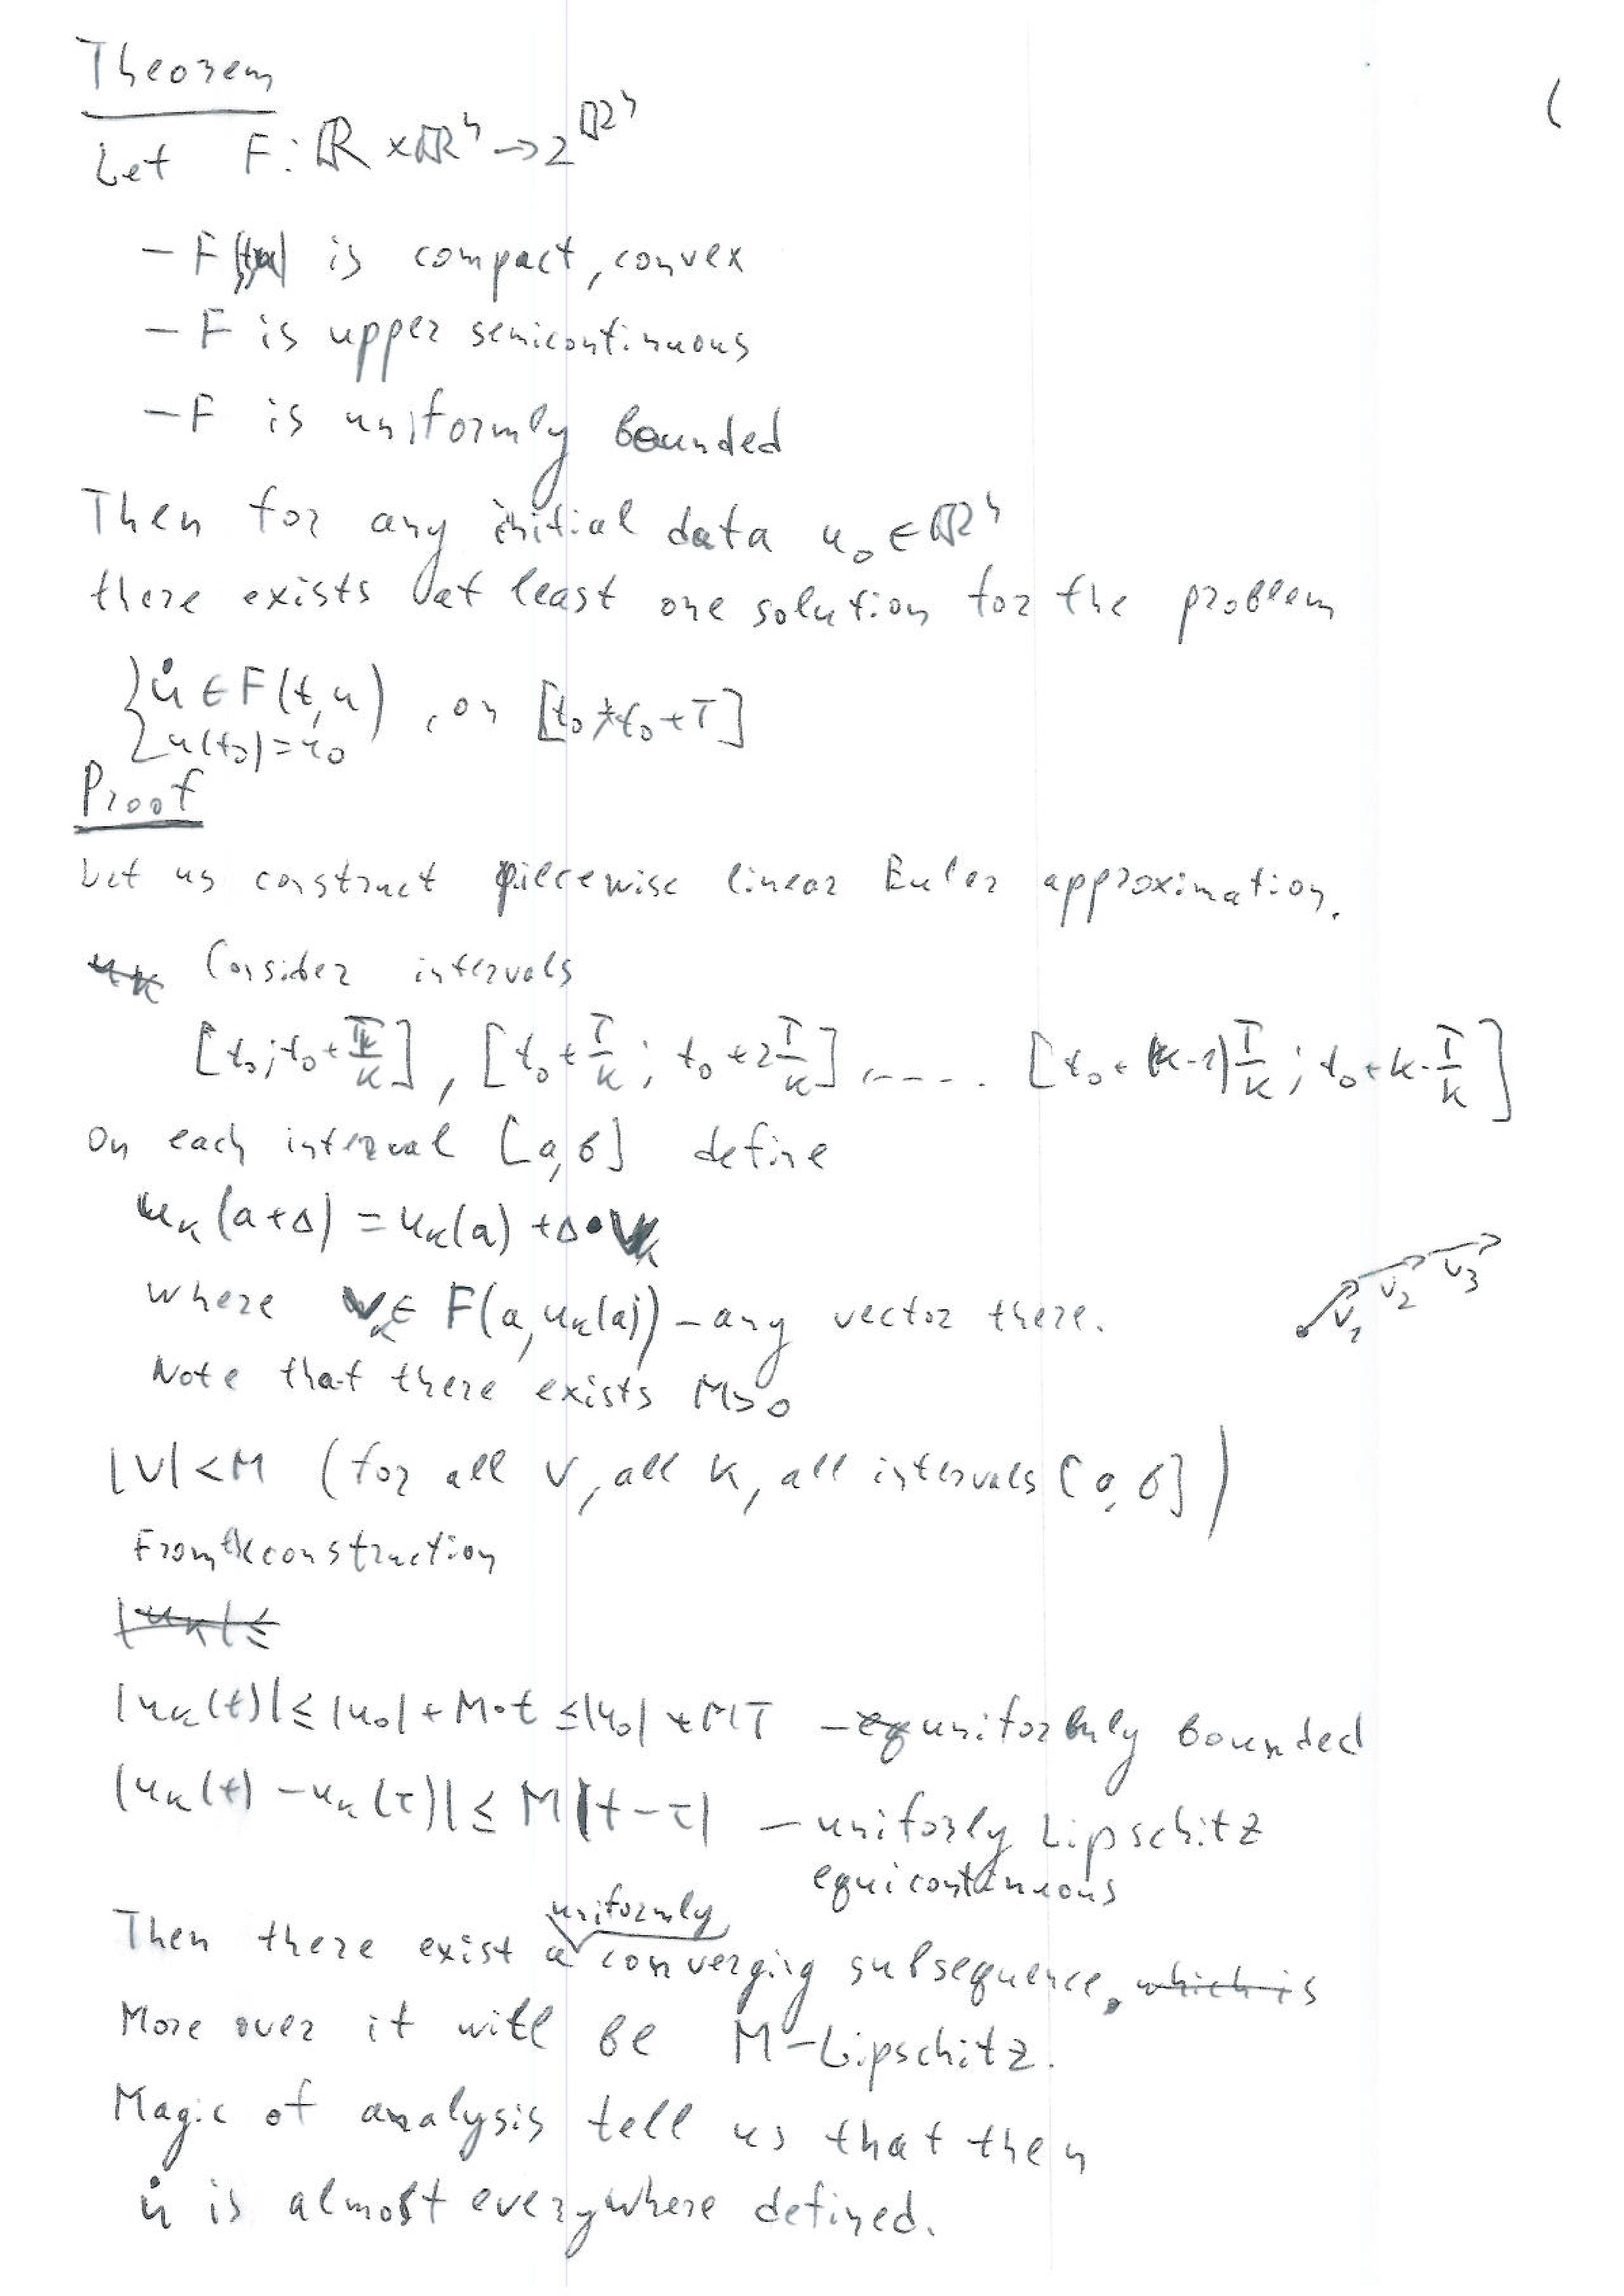 Theorem
Let F: ℝ × ℝⁿ → 2^ℝⁿ
(
— F(t,u) is compact, convex
— F is upper semicontinuous
— F is uniformly bounded
Then for any initial data u₀ ∈ ℝⁿ
there exists at least one solution for the problem
{ u̇ ∈ F(t,u)
u(t₀)=u₀ , on [t₀, t₀+T]
Proof
Let us construct piecewise linear Euler approximation.
Consider intervals
[t₀; t₀+T/k], [t₀+T/k; t₀+2T/k], ..... [t₀+(k-1)T/k; t₀+k·T/k]
On each interval [a,b] define
uₖ(a+Δ) = uₖ(a) + Δ·vₖ
where vₖ ∈ F(a,uₖ(a)) – any vector there.
v₁ v₂ v₃
Note that there exists M>0
|V|<M (for all v, all k, all intervals [a,b])
From the construction
|uₖ|≤
|uₖ(t)| ≤ |u₀| + M·t ≤ |u₀| + MT – uniformly bounded
|uₖ(t) – uₖ(τ)| ≤ M|t–τ| – uniforly Lipschitz
equicontinuous
Then there exist a uniformly converging subsequence. which is
More over it will be M-Lipschitz.
Magic of analysis tell us that then
u̇ is almost everywhere defined.